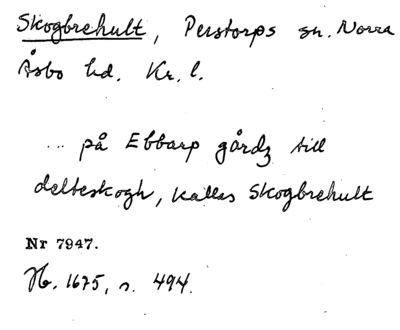 Skogbrehult, Perstorps sn. Norra
Åsbo hd. Kr. l.
... på Ebbarp gårdz till
delteskogh, kallas Skogbrehult
Nr 7947.
Hb. 1675, s. 494.